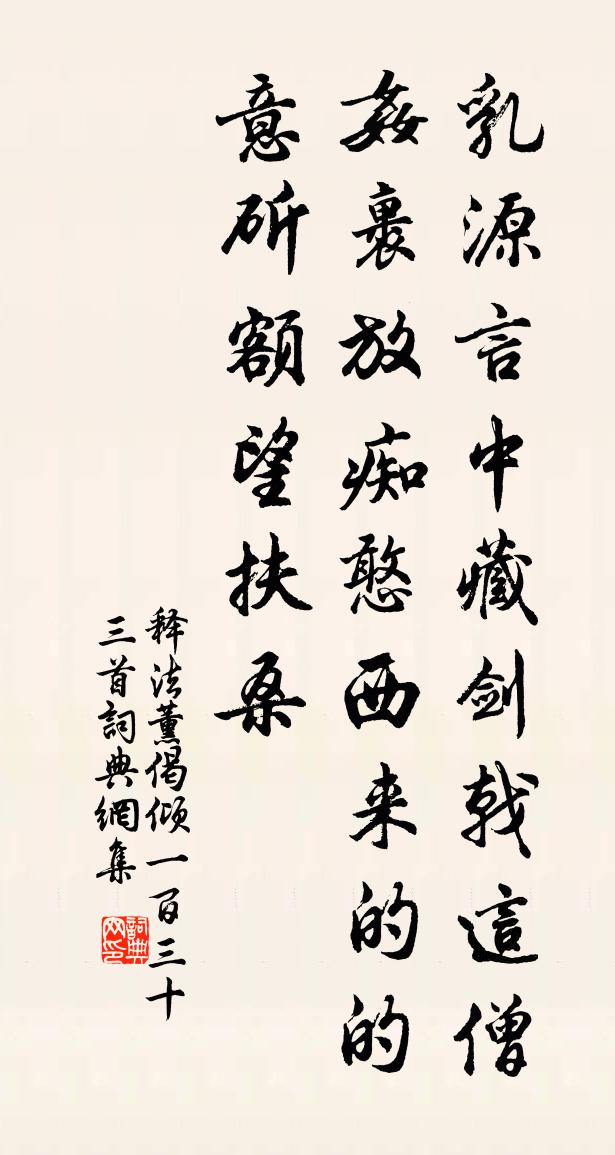 乳源言中藏剑戟這僧
姦裹放痴憨西来的的
意斫額望扶桑
释法薰偈傾一百三十
三首詞典網集
詞典网印